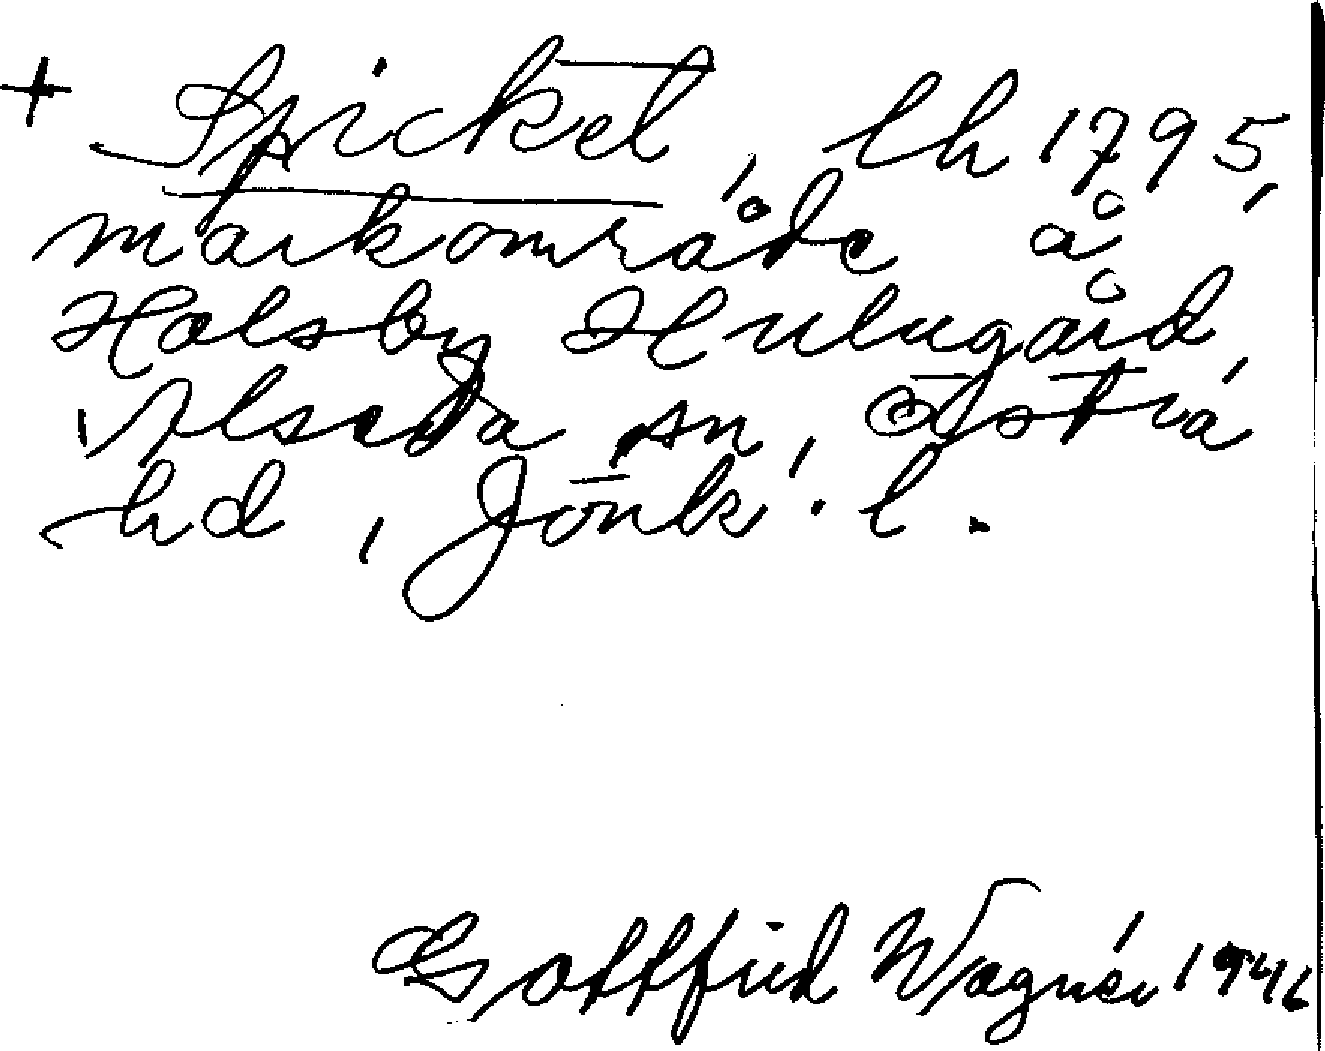 + Spickel, lh 1795,
markområde å
Holsby Hulugård,
Alseda sn, Östra
hd, Jönk. l.
Gottfrid Wagnér 1946